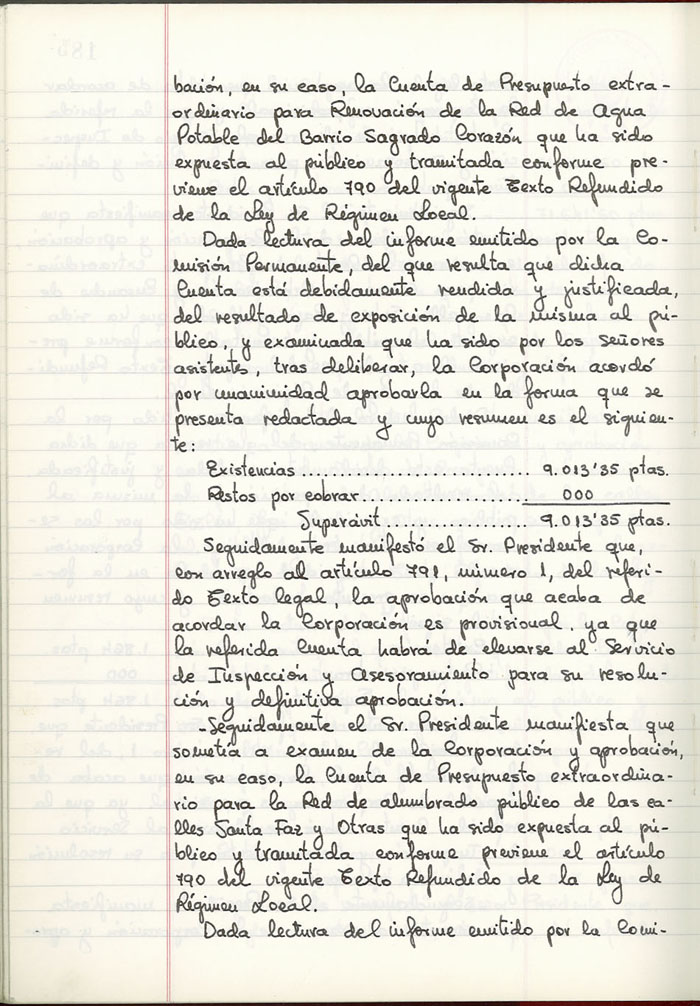 bación, en su caso, la Cuenta de Presupuesto extra-
ordinario para Renovación de la Red de Agua
Potable del Barrio Sagrado Corazón que ha sido
expuesta al público y tramitada conforme pre-
viene el artículo 790 del vigente Texto Refundido
de la Ley de Régimen Local.
Dada lectura del informe emitido por la Co-
misión Permanente, del que resulta que dicha
Cuenta está debidamente rendida y justificada,
del resultado de exposición de la misma al pú-
blico, y examinada que ha sido por los señores
asistentes, tras deliberar, la Corporación acordó
por unanimidad aprobarla en la forma que se
presenta redactada y cuyo resumen es el siguien-
te:
Existencias ............................ 9.013'35 ptas.
Restos por cobrar..................... 000
Superávit .................. 9.013'35 ptas.
Seguidamente manifestó el Sr. Presidente que,
con arreglo al artículo 791, número 1, del referi-
do Texto legal, la aprobación que acaba de
acordar la Corporación es provisional, ya que
la referida Cuenta habrá de elevarse al Servicio
de Inspección y Asesoramiento para su resolu-
ción y definitiva aprobación.
-Seguidamente el Sr. Presidente manifiesta que
sometía a examen de la Corporación y aprobación,
en su caso, la Cuenta de Presupuesto extraordina-
rio para la Red de alumbrado público de las ca-
lles Santa Faz y Otras que ha sido expuesta al pú-
blico y tramitada conforme previene el artículo
790 del vigente Texto Refundido de la Ley de
Régimen Local.
Dada lectura del informe emitido por la Comi-